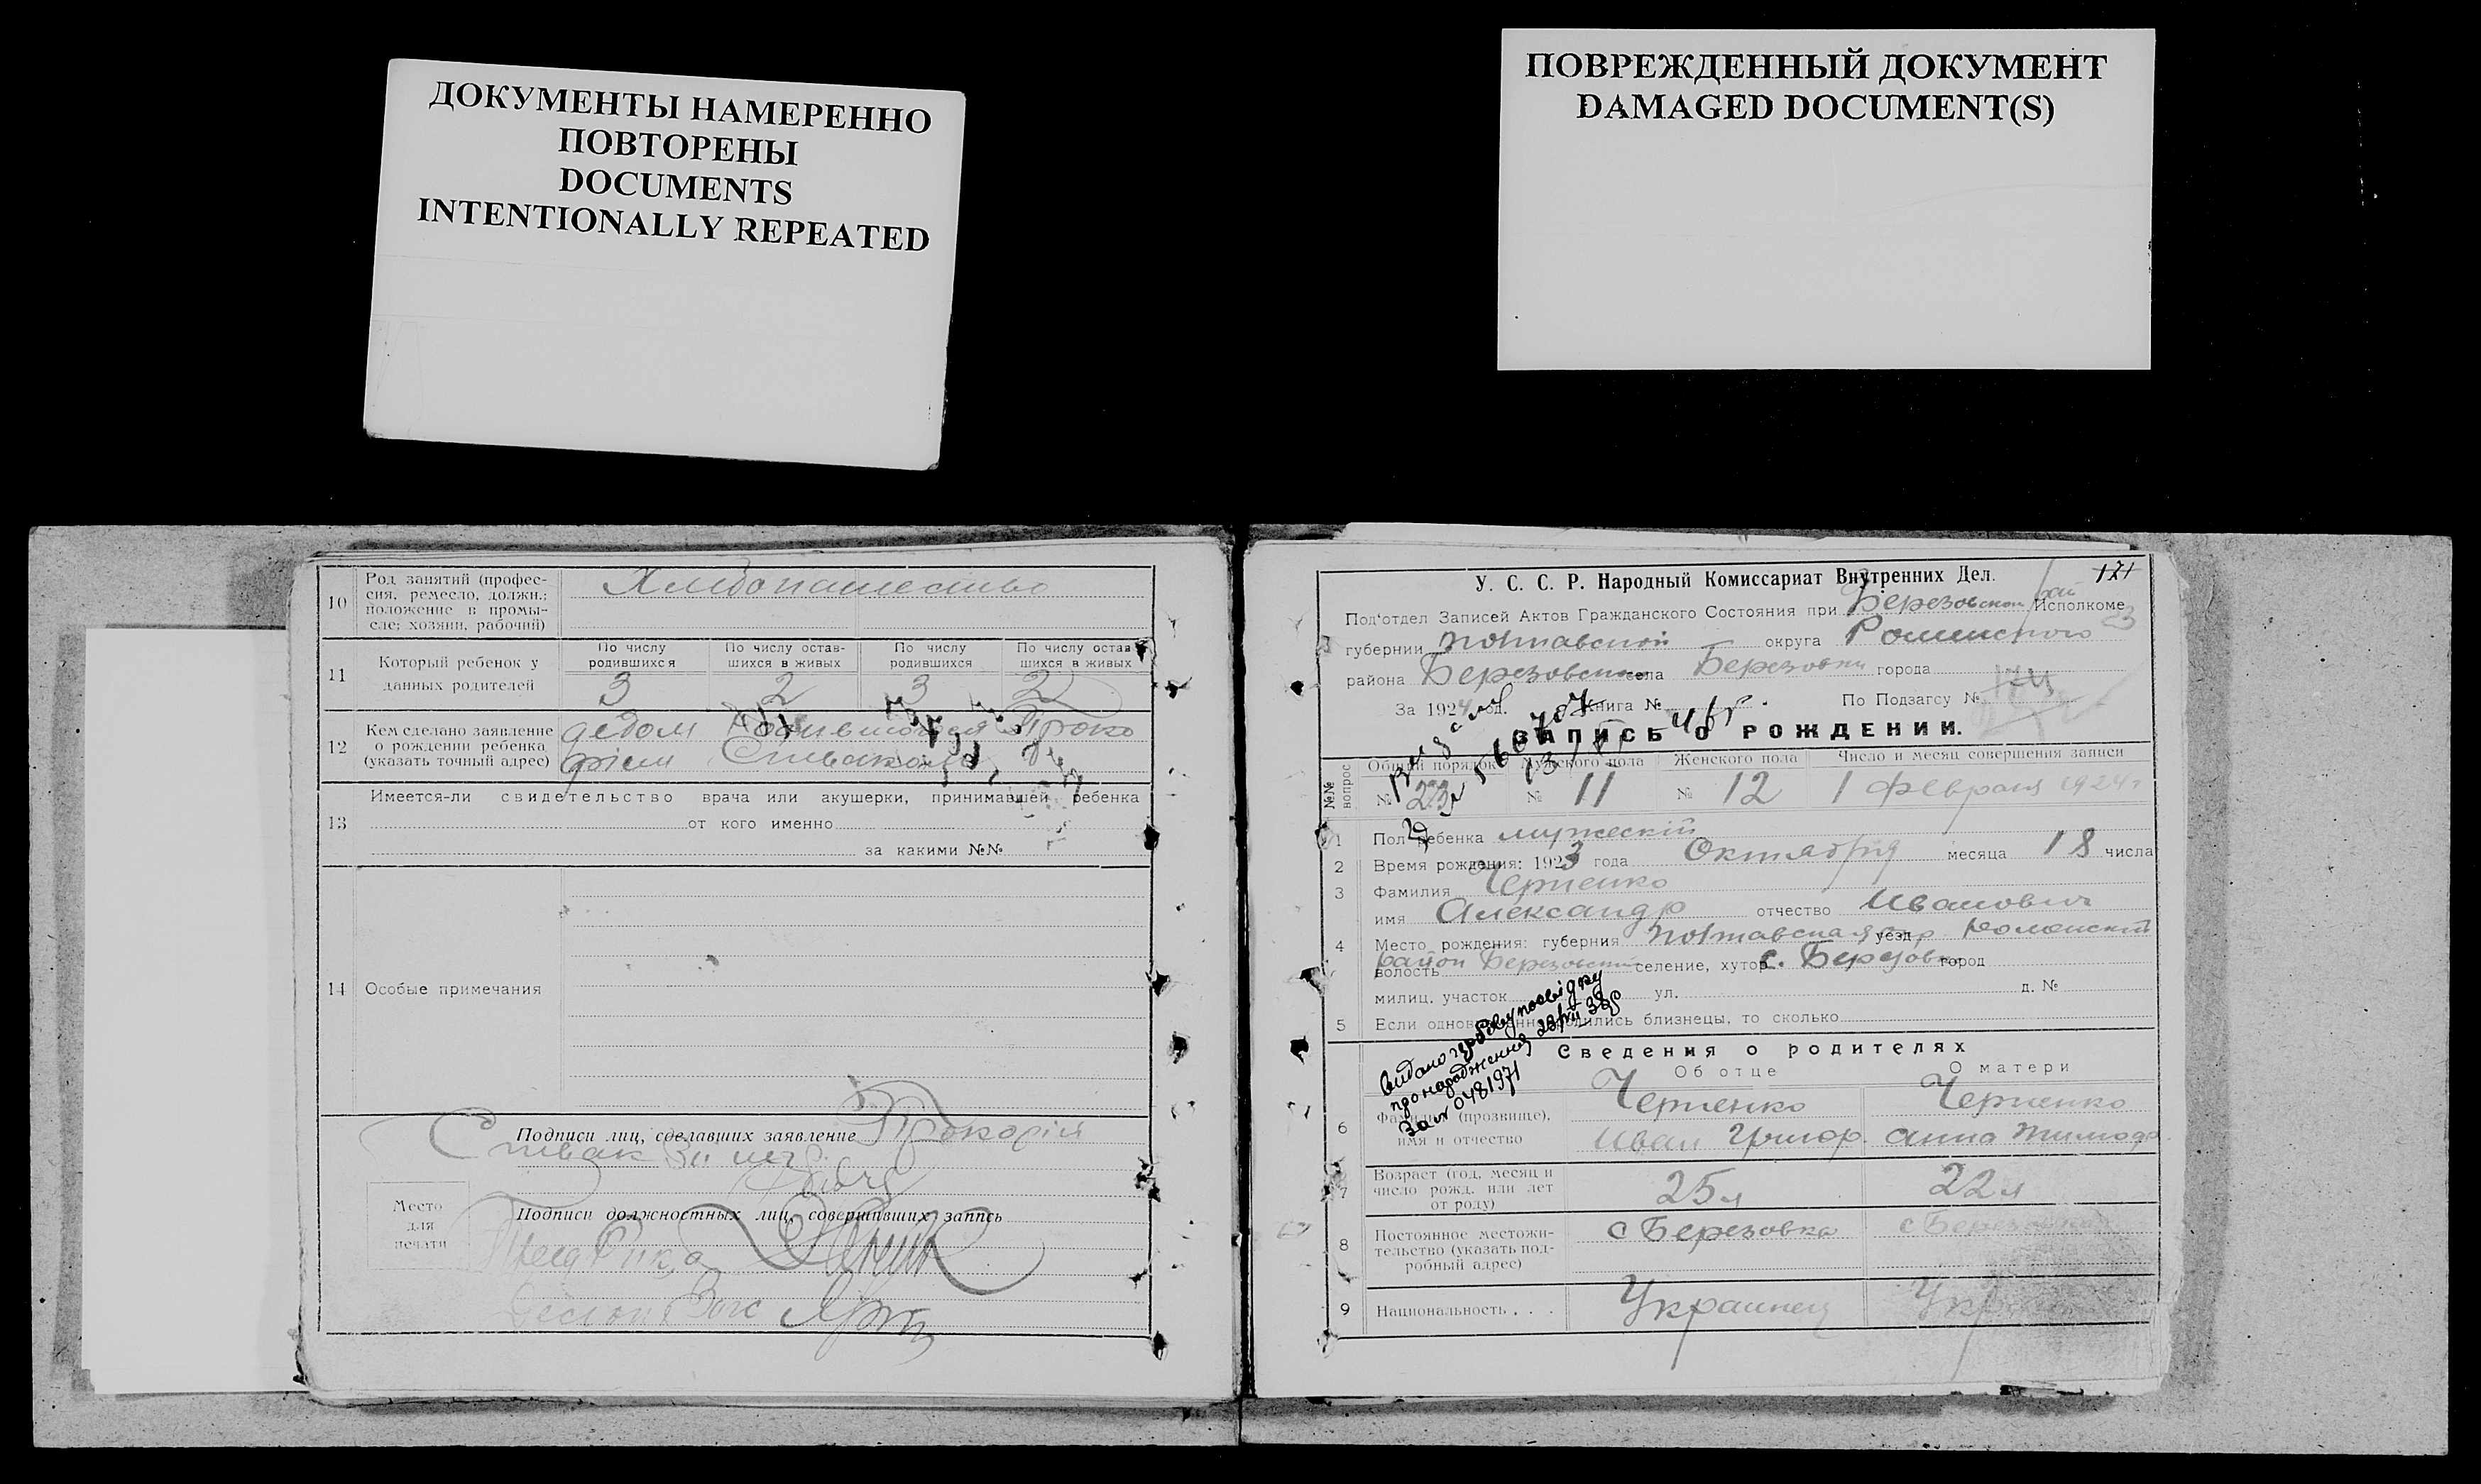 ДОКУМЕНТЫ НАМЕРЕННО
ПОВТОРЕНЫ
DOCUMENTS
INTENTIONALLY REPEATED
ПОВРЕЖДЕННЫЙ ДОКУМЕНТ
DAMAGED DOCUMENT(S)
10 Род занятий (профес-
сия, ремесло, должн.;
положение в промы-
сле; хозяин, рабочий)
Хлебопашество
11 Который ребенок у
данных родителей
По числу родившихся
По числу остав-шихся в живых
По числу родившихся
По числу остав-шихся в живых
3 2 3 2
12 Кем сделано заявление
о рождении ребенка
(указать точный адрес)
дедом Проко
фіем Спиваком
13 Имеется-ли свидетельство врача или акушерки, принимавшей ребенка
от кого именно
за какими №№
14 Особые примечания
Подписи лиц, сделавших заявление Прокофій
Спивак
Место
для
печати
Подписи должностных лиц, совершивших запись
121
У. С. С. Р. Народный Комиссариат Внутренних Дел.
Под'отдел Записей Актов Гражданского Состояния при Березовском рай Исполкоме
губернии Полтавской округа Роменского 23
района Березовского села Березовки города
За 1924 год. Книга № По Подзагсу №
ЗАПИСЬ О РОЖДЕНИИ.
№№ вопрос
Общий порядок Мужского пола Женского пола Число и месяц совершения записи
№ 23 № 11 № 12 1 февраля 1924 г
1 Пол ребенка мужескій
2 Время рождения: 1923 года Октября месяца 18 числа
3 Фамилия Черненко
имя Александр отчество Иванович
4 Место рождения: губерния Полтавская уезд окр Роменский
волость район Березовский селение, хутор с. Березовка город
милиц. участок ул. д. №
5 Если одновременно родились близнецы, то сколько
видано посвідку
про народження 29/VII 38р
за № 0481971
Сведения о родителях
Об отце О матери
6 Фамилия (прозвище),
имя и отчество
Черненко Черненко
Иван Григор. Анна Тимоф.
7 Возраст (год, месяц и
число рожд. или лет
от роду)
25 л 22 л
8 Постоянное местожи-
тельство (указать под-
робный адрес)
с Березовка с Березовка
9 Национальность . . .
Украинец Укр